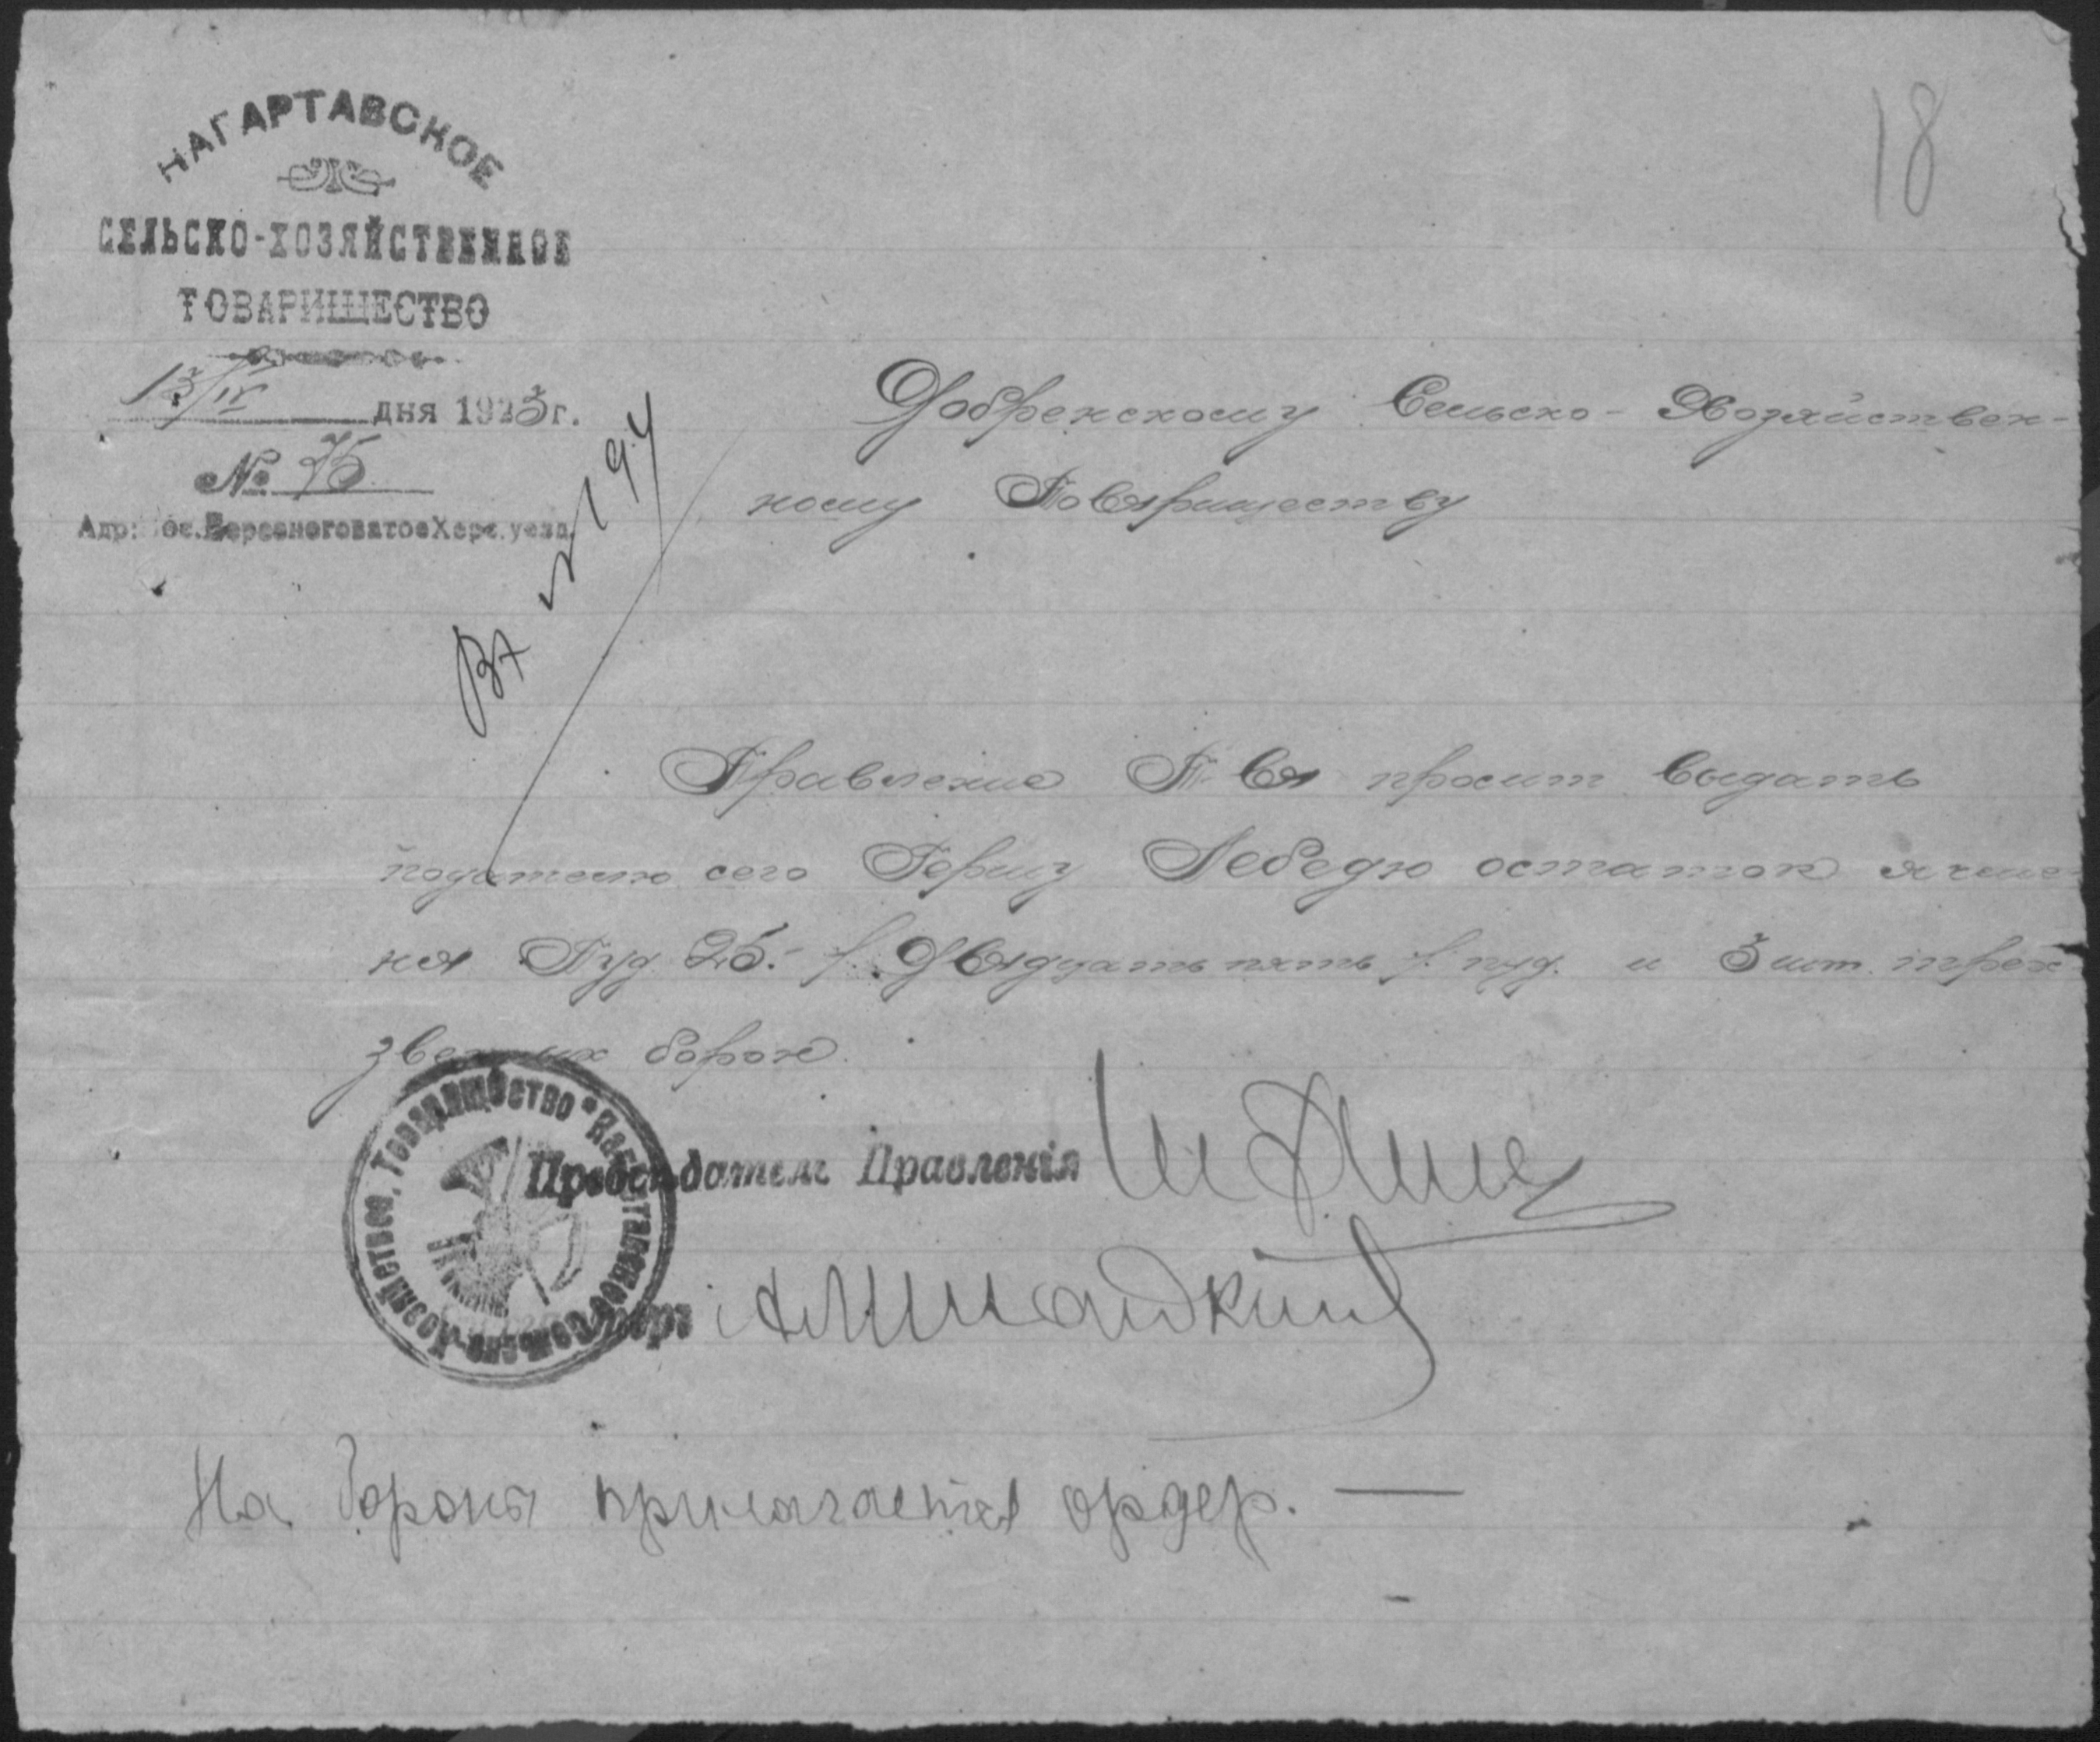 18
НАГАРТАВСКОЕ
СЕЛЬСКО-ХОЗЯЙСТВЕННОЕ
ТОВАРИЩЕСТВО
13/IV дня 1923 г.
№ 75
Адр: Береснеговатое Херс. уезд.
Вх № 194
Добренскому Сельско-Хозяйствен-
ному Товариществу
Правление Т-ва просит выдать
подателю сего Гершу Лебедю остаток ячме-
ня Пуд 25.- /. Двадцать пять /. пуд. и 3 шт. трех
зве борон.
Председатель Правленія
Товарищество * Нагартавское Сельско-Хозяйствен.
На бороны прилагается ордер. —